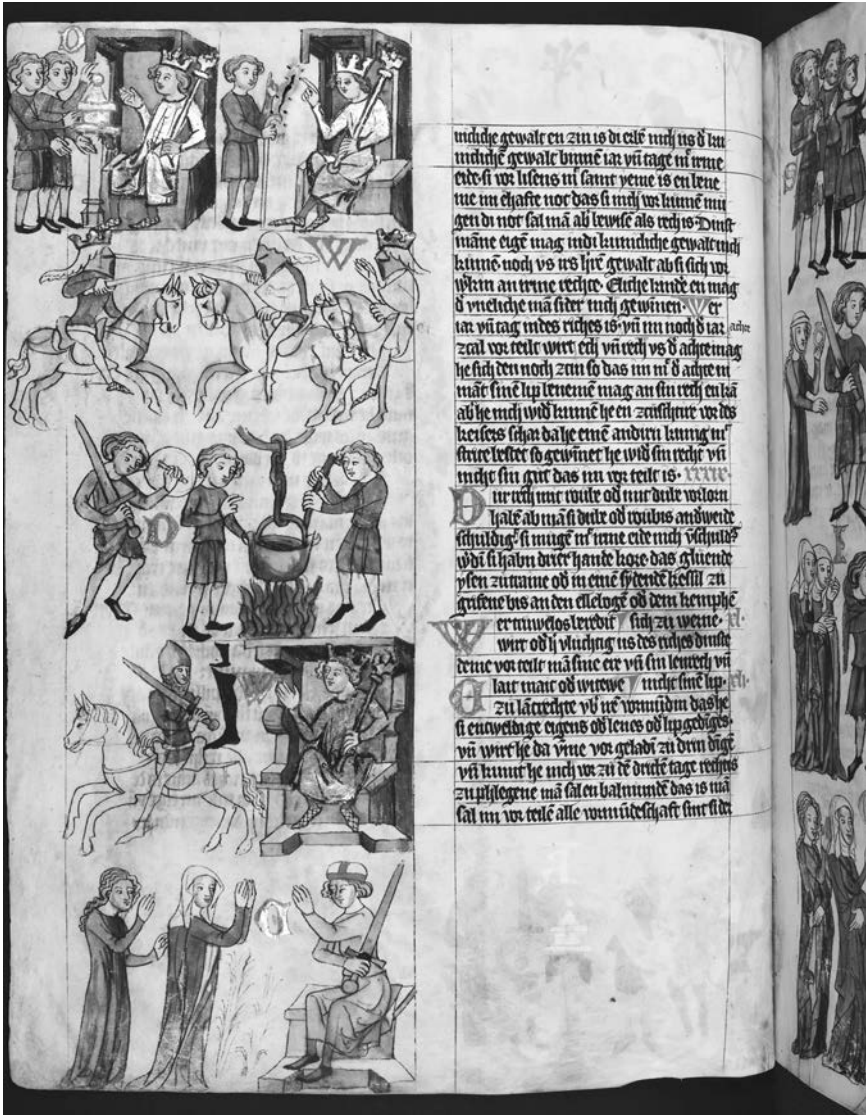 nicliche gewalt en zin is di erbē nich us d̕ ku
nicliche gewalt binnē iar vn̄ tage m̕ irme
eide si vor lisens m̕ samt yeme is en bene
me im ehafte not das si nich vor kumen mu
gen di not sal mā ab bewise als rech is Dinst
māne eigē mag indi kunicliche gewalt nich
kumē noch vs irs hrē gewalt ab si sich vor
an irme rechte Eliche kinde en mag
d̕ vneliche mā sider nich gewinen Wer
iar vn̄ tag indes riches is vn̄ im noch d̕ iar achte
zcal vor teilt wirt ech vn̄ rech vs d̕ achte mag
he sich den noch zcin so das im m̕ d̕ achte ni
māt sinē lip benemē mag an sin rech en kā
ab he nich wid̕ kumē he en zcuschture vor des
keisers schar da he eine andirn kunig m̕
strite bestet so gewinet he wid̕ sin recht vn̄
nicht sin gut das im vor teilt is
Di ir rech mit roube od̕ mit dube vorlorn
habē ab mā si dube od̕ roubis andweide
schuldigt si mugē m̕ irme eide nich vnschuldig
w̕dī si habn drier hande kore das gluende
ysen zu traine od̕ in eine sydende kessil zu
grifene bis an den ellebogē od̕ dem kemphē
Wer truwelos beredit sich zu werne xl
wirt od̕ h̕ vluchtig us des riches dinste
deme vor teilt mā sine ere vn̄ sin lenrech vn̄
Clait mait od̕ witewe nicht sinē lip xli
zu lantrechte vb̕ irē vormundin das he
si entweldige eigens od̕ lenes od̕ lipgediges
vn̄ wirt he da vme vor geladī zu drin dige
vn̄ kumt he nich vor zu dē dritte tage rechtis
zu phlegene mā sal en balmunde das is mā
sal im vor teile alle vormūdeschaft sint si der